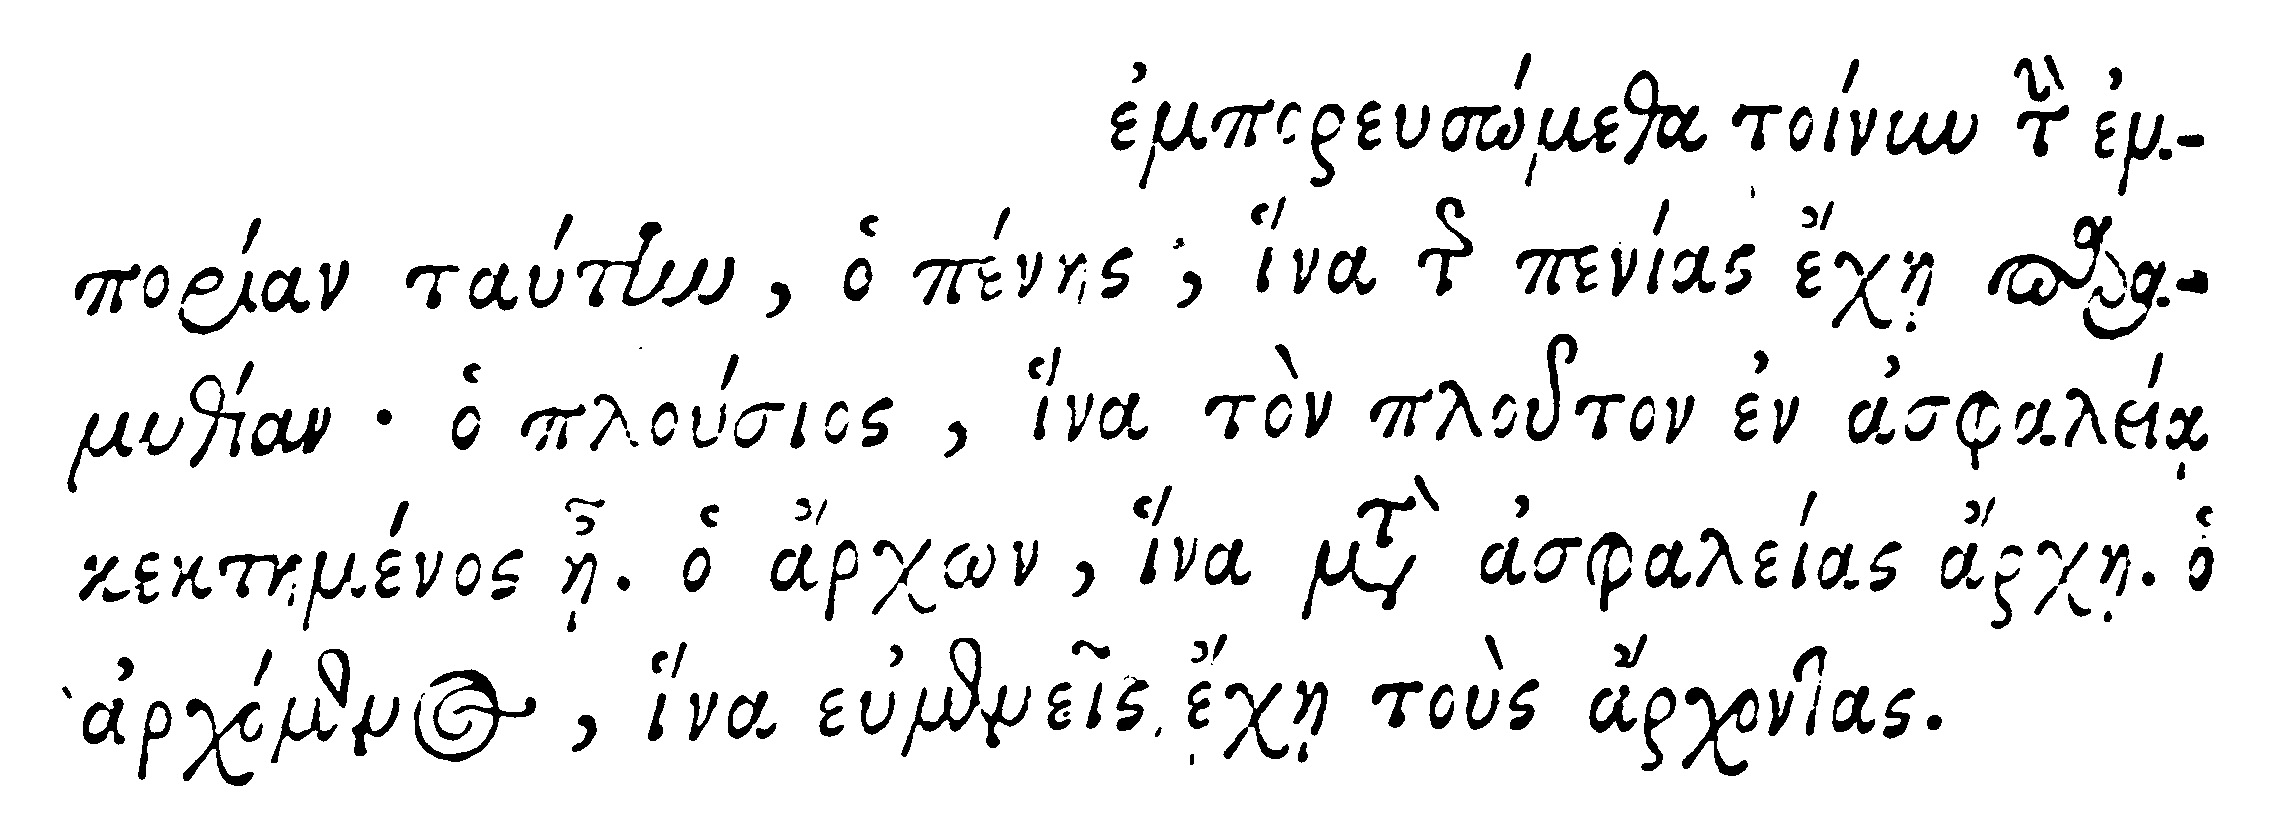 ἐμπορευσώμεθα τοίνυν τὴν ἐμ-
πορίαν ταύτην, ὁ πένης, ἵνα τῆς πενίας ἔχῃ παρα-
μυθίαν· ὁ πλούσιος, ἵνα τὸν πλοῦτον ἐν ἀσφαλείᾳ
κεκτημένος ᾖ. ὁ ἄρχων, ἵνα μετὰ ἀσφαλείας ἄρχῃ. ὁ
ἀρχόμενος, ἵνα εὐμενεῖς ἔχῃ τοὺς ἄρχοντας.